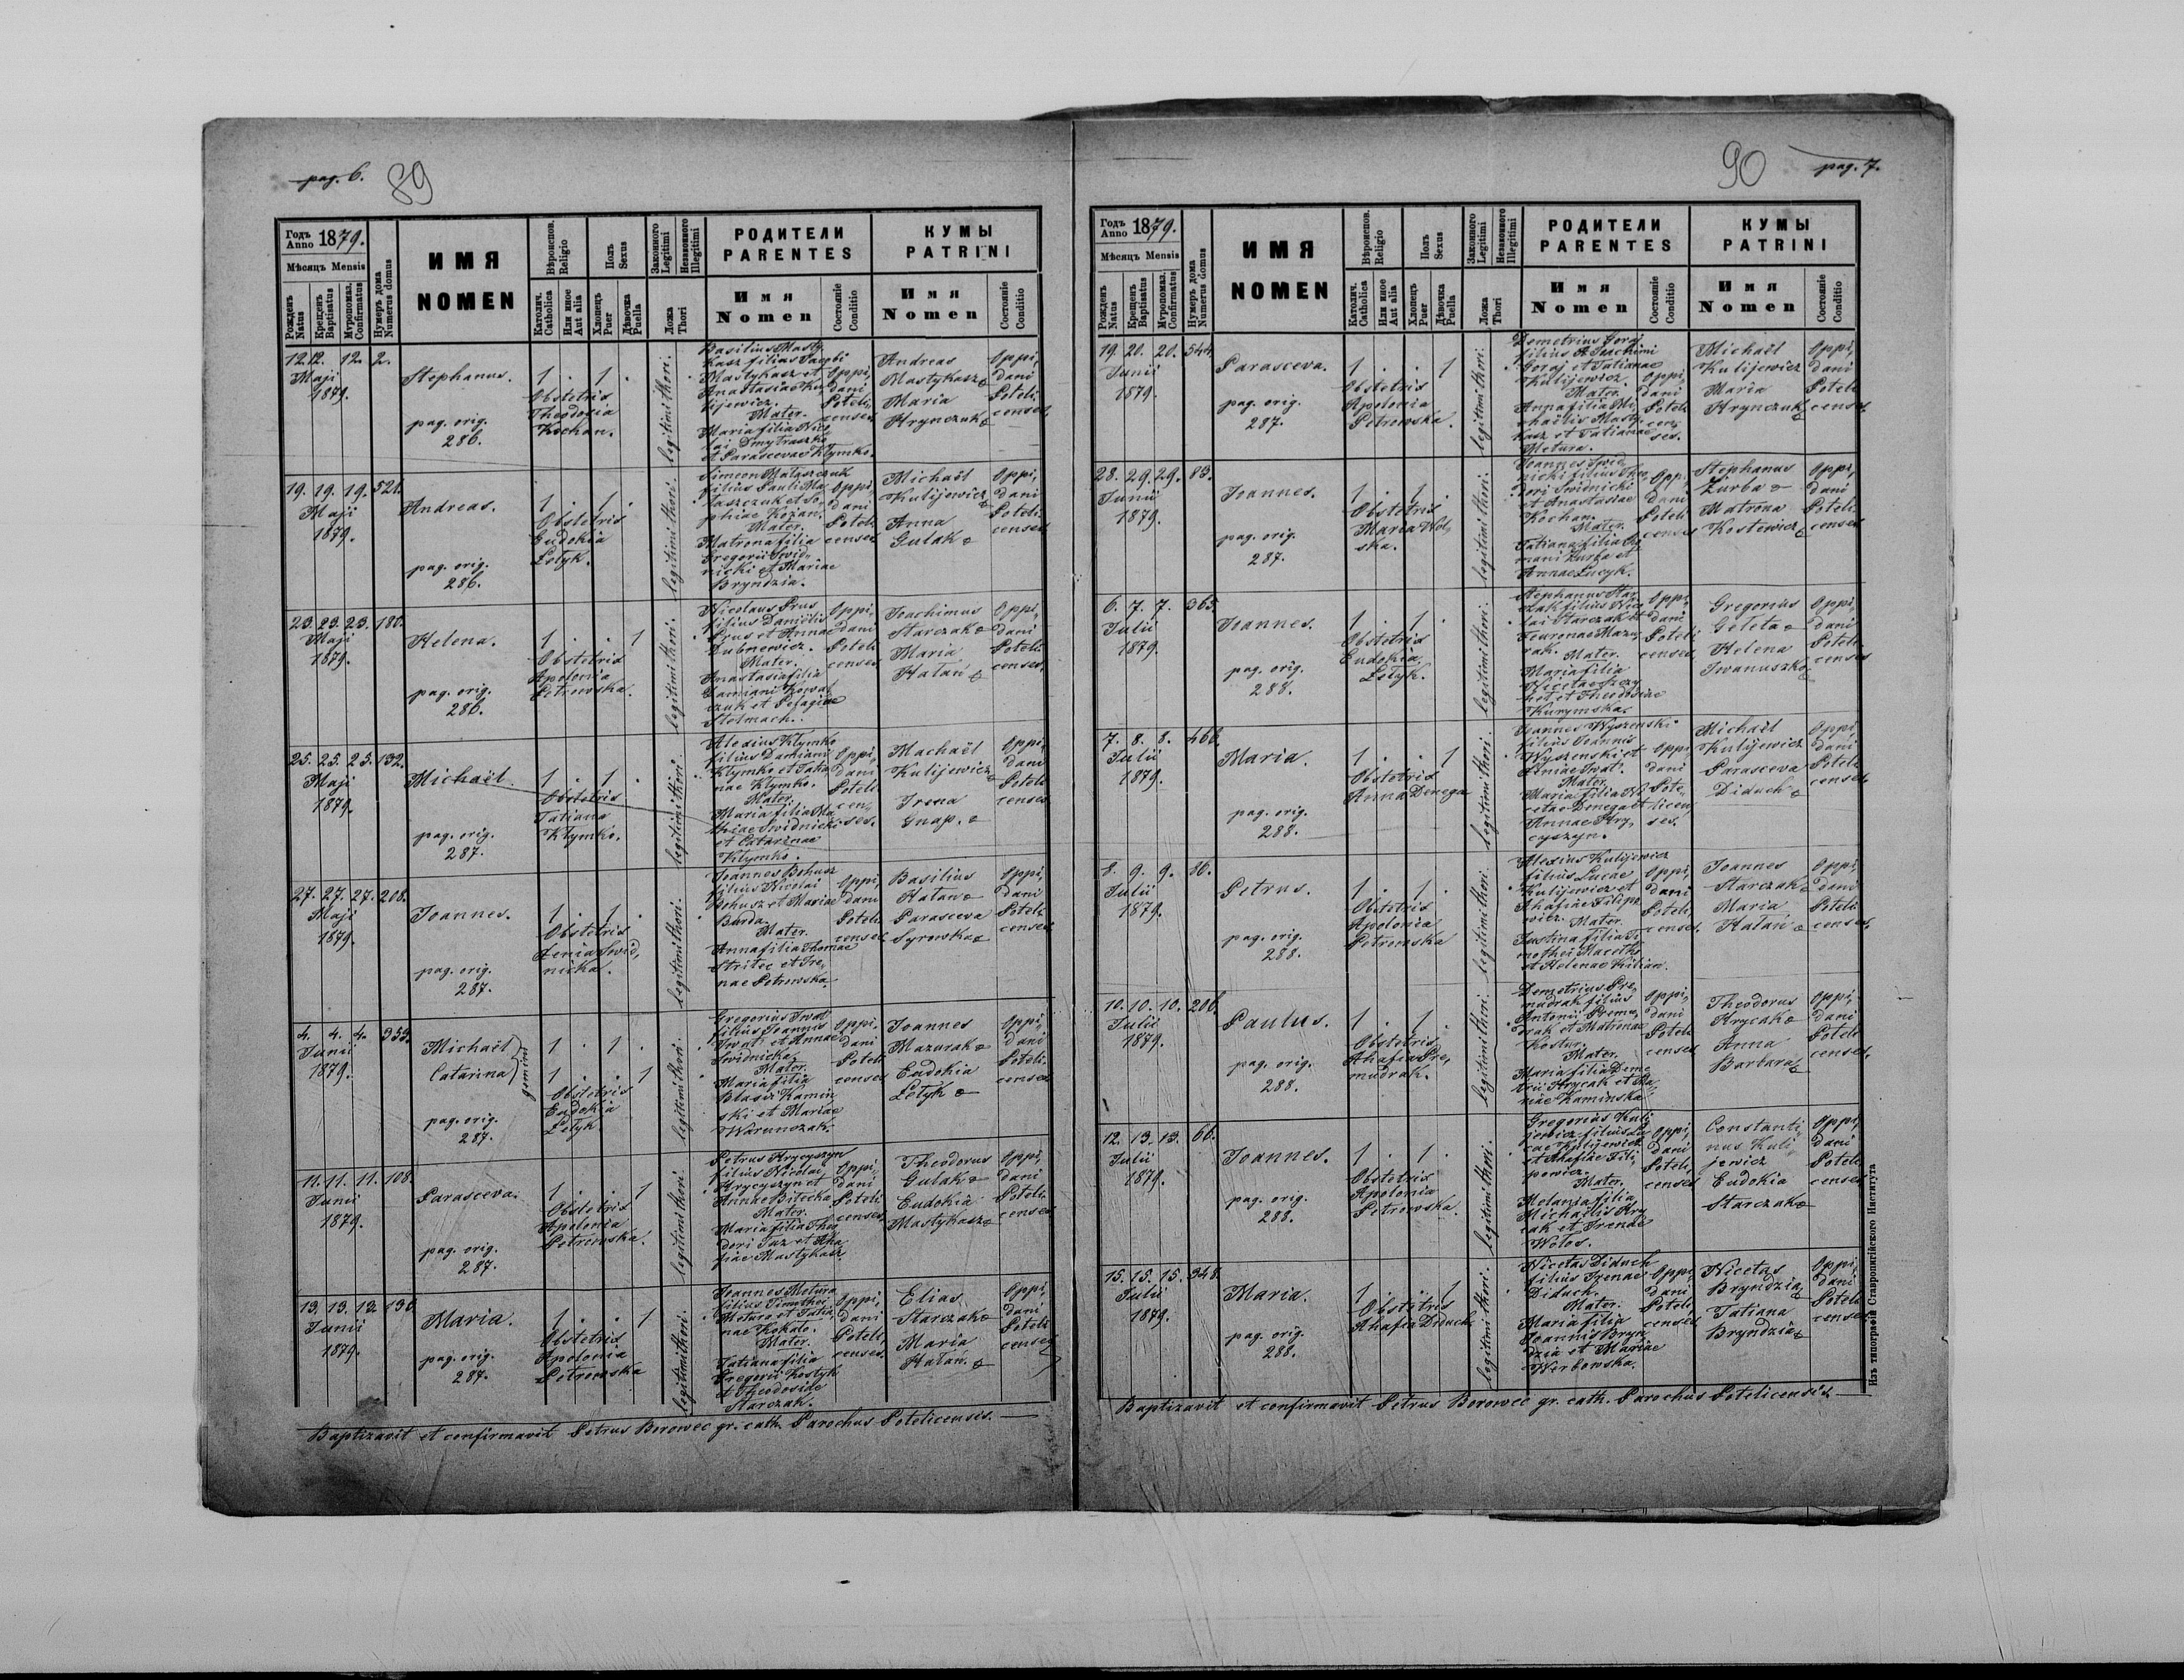 pag. 6.
89
Годъ Anno 1879.
Мѣсяцъ Mensis
Рожденъ Natus
Крещенъ Baptisatus
Мѵропомаз. Confirmatus
Нумеръ дома Numerus domus
ИМЯ
NOMEN
Вѣроиспов. Religio
Католич. Catholica
Или иное Aut alia
Полъ Sexus
Хлопецъ Puer
Дѣвочка Puella
Законного Legitimi
Незаконного Illegitimi
Ложа Thori
РОДИТЕЛИ
PARENTES
Имя
Nomen
Состояніе
Conditio
КУМЫ
PATRINI
Имя
Nomen
Состояніе
Conditio
12. 12. 12. 2.
Maji
1879.
Stephanus.
pag. orig.
286.
1 . 1 .
Obstetrix
Theodosia
Kochan.
legitimi thori.
Basilius Masty,
kasz filius Jacobi
Mastykasz et
Anastasiae Ku,
lijewicz.
Mater.
Maria filia Nico
lai Dmytraszko
et Parascevae Klymko.
Oppi,
dani
Poteli,
censes
Andreas
Mastykasz &
Maria
Hrynczuk &
Oppi,
dani
Poteli,
censes
19. 19. 19. 521.
Maji
1879.
Andreas.
pag. orig.
286.
1 . 1 .
Obstetrix
Eudokia
Letyk.
legitimi thori.
Simeon Mataszczuk
filius Pauli Ma,
taszczuk et So,
phiae Kożan.
Mater.
Matrona filia
Gregorii Swid,
nicki et Mariae
Bryndzia.
Oppi,
dani
Poteli
censes
Michaël
Kulijewicz &
Anna
Gulak &
Oppi,
dani
Poteli
censes
23. 23. 23. 180.
Maji
1879.
Helena.
pag. orig.
286.
1 . . 1
Obstetrix
Apolonia
Petrowska.
legitimi thori.
Nicolaus Prus
filius Daniëlis
Prus et Annae
Dubnewicz.
Mater.
Anastasia filia
Damiani Kowal
czuk et Pelagiae
Stelmach.
Oppi,
dani
Poteli
censes
Joachimus
Starczak &
Maria
Hatan &
Oppi,
dani
Poteli
censes.
25. 25. 25. 132.
Maji
1879.
Michaël
pag. orig.
287.
1 . 1 .
Obstetrix
Tatiana
Klymko.
legitimi thori.
Alexius Klymko
filius Damiani
Klymko et Tatia
nae Klymko.
Mater.
Maria filia Ma
thiae Swidnicki
et Catarinae
Klymko.
Oppi,
dani
Poteli
cen,
ses.
Machaël
Kulijewicz &
Irena
Gnap. &
Oppi,
dani
Poteli
censes
27. 27. 27. 208.
Maji
1879.
Joannes.
pag. orig.
287.
1 . 1 .
Obstetrix
Xenia Swid,
nicka.
legitimi thori.
Joannes Bohusz
filius Nicolai
Bohusz et Mariae
Barda
Mater.
Anna filia Thomae
Stritec et Ire,
nae Petrowska.
Oppi,
dani
Poteli
censes
Basilius
Hatan &
Parasceva
Syrowka &
Oppi,
dani
Poteli
censes
4. 4. 4. 355.
Junii
1879.
Michaël
Catarina
gemini
pag. orig.
287.
1 . 1 .
1 . . 1
Obstetrix
Eudokia
Letyk
legitimi thori.
Gregorius Iwat
filius Joannis
Iwat et Annae
Swidnicka
Mater.
Maria filia
Blasii Kamin
ski et Mariae
Warunczak.
Oppi,
dani
Poteli
censes
Joannes
Mazurak &
Eudokia
Letyk &
Oppi,
dani
Poteli
censes
11. 11. 11. 108.
Junii
1879.
Parasceva.
pag. orig.
287.
1 . . 1
Obstetrix
Apolonia
Petrowska.
legitimi thori.
Petrus Hrycyszyn
filius Nicolai
Hrycyszyn et
Annae Bitecka
Mater.
Maria filia Theo
dori Taz et Aha
fiae Mastykasz
Oppi,
dani
Poteli
censes
Theodorus
Gulak &
Eudokia
Mastykasz &
Oppi,
dani
Poteli
censes
13. 13. 13. 130.
Junii
1879.
Maria.
pag. orig.
287.
1 . . 1
Obstetrix
Apolonia
Petrowska
legitimi thori.
Joannes Metura
filius Timothei
Metura et Tatia,
nae Kokato.
Mater.
Tatiana filia
Gregorii Kostyk
et Theodosiae
Starczak.
Oppi,
dani
Poteli
censes.
Elias
Starczak &
Maria
Hatan. &
Oppi,
dani
Poteli
censes
Baptizavit et confirmavit Petrus Borowec gr. cath. Parochus Potelicensis.
90
pag. 7.
Годъ Anno 1879.
Мѣсяцъ Mensis
Рожденъ Natus
Крещенъ Baptisatus
Мѵропомаз. Confirmatus
Нумеръ дома Numerus domus
ИМЯ
NOMEN
Вѣроиспов. Religio
Католич. Catholica
Или иное Aut alia
Полъ Sexus
Хлопецъ Puer
Дѣвочка Puella
Законного Legitimi
Незаконного Illegitimi
Ложа Thori
РОДИТЕЛИ
PARENTES
Имя
Nomen
Состояніе
Conditio
КУМЫ
PATRINI
Имя
Nomen
Состояніе
Conditio
19. 20. 20. 544.
Junii
1879.
Parasceva.
pag. orig.
287.
1 . . 1
Obstetrix
Apolonia
Petrowska.
legitimi thori.
Demetrius Goraj
filius Joachimi
Goraj et Tatianae
Kulijewicz.
Mater.
Anna filia Mi,
chaëlis Masty,
kasz et Tatianae
Metura.
Oppi,
dani
Poteli
cen,
ses.
Michaël
Kulijewicz
Maria
Hrynczuk &
Oppi,
dani
Poteli
censes
28. 29. 29. 83.
Junii
1879.
Joannes.
pag. orig.
287.
1 . 1 .
Obstetrix
Maria Wol,
ska.
legitimi thori.
Joannes Swid
nicki filius Theo,
dori Swidnicki
et Anastasiae
Kochan.
Mater.
Tatiana filia Ro
mani Zurba et
Annae Lucyk.
Oppi,
dani
Poteli
censes
Stephanus
Zurba &
Matrona
Kostewicz &
Oppi,
dani
Poteli
censes
6. 7. 7. 365.
Julii
1879.
Joannes.
pag. orig.
288.
1 . 1 .
Obstetrix
Eudokia
Letyk.
legitimi thori.
Stephanus Star
czak filius Nico
lai Starczak et
Feuronae Mazu,
rak. Mater.
Maria filia
Nicetae
et Theodosiae
Kurymska.
Oppi,
dani
Poteli
censes
Gregorius
Geleta &
Helena
Iwanuszko &
Oppi,
dani
Poteli
censes
7. 8. 8. 466.
Julii
1879.
Maria.
pag. orig.
288.
1 . . 1
Obstetrix
Anna Denega
legitimi thori.
Joannes Wyszenski
filius Joannis
Wyszenski et
Xeniae Iwat.
Mater.
Maria filia Ni
cetae Denega et
Annae Hry,
cyszyn.
Oppi,
dani
Pote,
licen,
ses.
Michaël
Kulijewicz
Parasceva
Diduch &
Oppi,
dani
Poteli
censes
8. 9. 9. 36.
Julii
1879.
Petrus.
pag. orig.
288.
1 . 1 .
Obstetrix
Apolonia
Petrowska
legitimi thori.
Alexius Kulijewicz
filius Lucae
Kulijewicz et
Ahafiae Filipo
wicz. Mater.
Justina filia Ti
mothei
et Helenae Kilian.
Oppi,
dani
Poteli,
censes.
Joannes
Starczak &
Maria
Hatan &
Oppi,
dani
Poteli
censes,
10. 10. 10. 206.
Julii
1879.
Paulus.
pag. orig.
288.
1 . 1 .
Obstetrix
Ahafia Pre,
mudrak.
legitimi thori.
Demetrius Pre,
mudrak filius
Antonii Premu,
drak et Matronae
Kostur.
Mater.
Maria filia Deme
trii Hrycak et Ma,
riae Kaminska
Oppi,
dani
Poteli
censes
Theodorus
Hrycak &
Anna
Barbara &
Oppi,
dani
Poteli
censes
12. 13. 13. 66.
Julii
1879.
Joannes.
pag. orig.
288.
1 . 1 .
Obstetrix
Apolonia
Petrowska.
legitimi thori.
Gregorius Kuli
jewicz filius Lu
cae Kulijewicz
et Ahafiae Fili,
powicz.
Mater.
Melania filia
Michaëlis Hry
cak et Irenae
Wolos.
Oppi,
dani
Poteli,
censes
Constanti
nus Kuli
jewicz
Eudokia
Starczak &
Oppi,
dani
Poteli,
censes
15. 15. 15. 348.
Julii
1879.
Maria.
pag. orig.
288.
1 . . 1
Obstetrix
Ahafia Diduch
legitimi thori.
Nicetas Diduch
filius Irenae
Diduch.
Mater.
Maria filia
Joannis Bryn
dzia et Mariae
Werbowska.
Oppi,
dani
Poteli
censes
Nicetas
Bryndzia &
Tatiana
Bryndzia &
Oppi,
dani
Poteli
censes
Baptizavit et confirmavit Petrus Borowec gr. cath. Parochus Potelicensis.
Изъ типографіи Ставропигійского Института